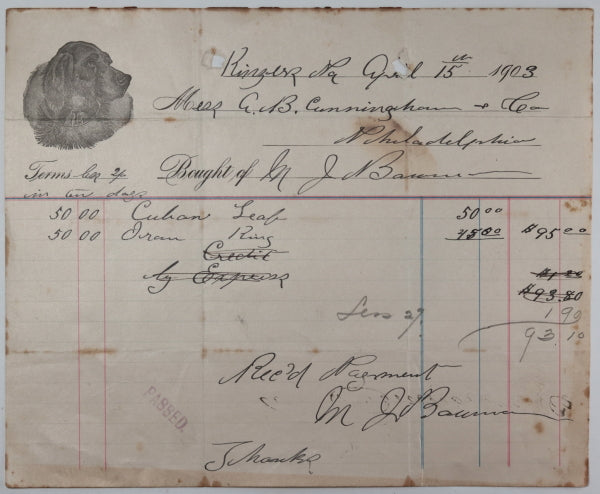 Kinzers Pa April 15th 1903
Mess A. B. Cunningham & Co
Philadelphia
Terms less 2%
in ten days
Bought of M J Bauman
5000 Cuban Leaf 50 00
5000 King 45 00 $95 00
Credit
by Express $1.20
$93.80
Less 2% 1 90
93.10
Rec'd Payment
M J Bauman
PASSED.
Thanks